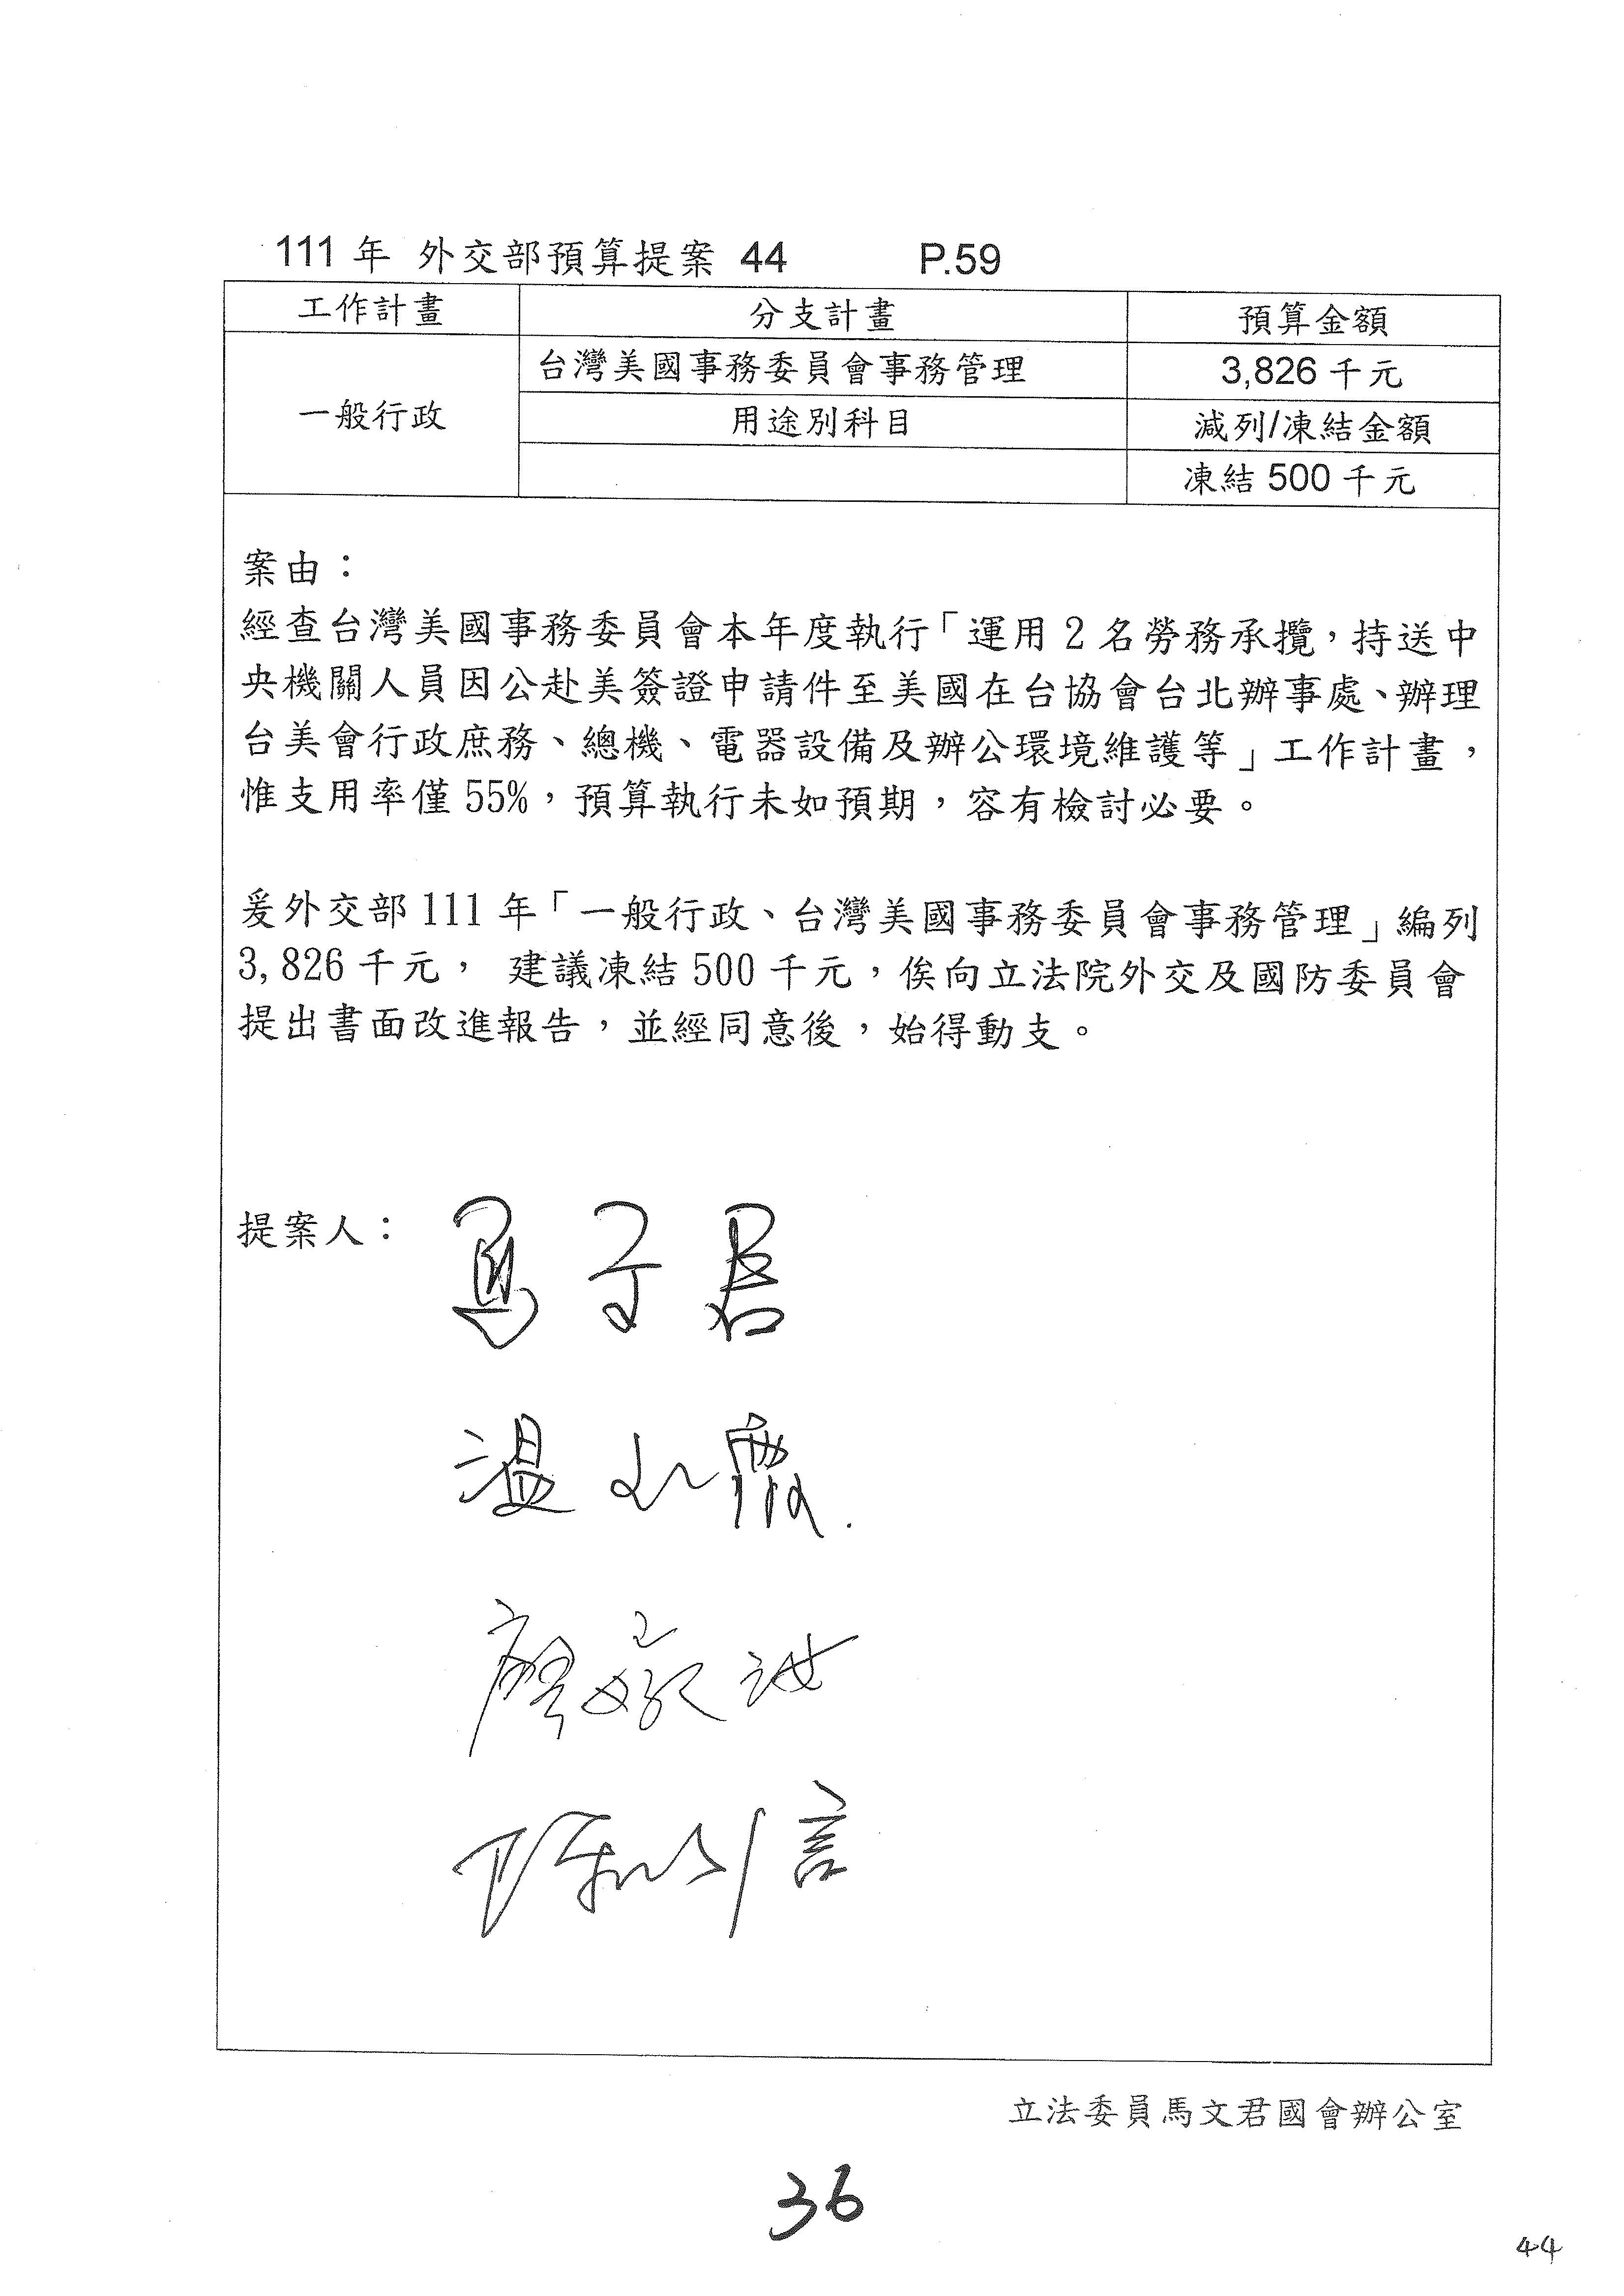 111 年 外交部預算提案 44 P.59
工作計畫 分支計畫 預算金額
一般行政 台灣美國事務委員會事務管理 3,826 千元
用途別科目 減列/凍結金額
凍結 500 千元
案由：
經查台灣美國事務委員會本年度執行「運用 2 名勞務承攬，持送中
央機關人員因公赴美簽證申請件至美國在台協會台北辦事處、辦理
台美會行政庶務、總機、電器設備及辦公環境維護等」工作計畫，
惟支用率僅 55%，預算執行未如預期，容有檢討必要。
爰外交部 111 年「一般行政、台灣美國事務委員會事務管理」編列
3,826 千元， 建議凍結 500 千元，俟向立法院外交及國防委員會
提出書面改進報告，並經同意後，始得動支。
提案人： 馬文君
溫玉霞
廖婉汝
陳以信
立法委員馬文君國會辦公室
36
44